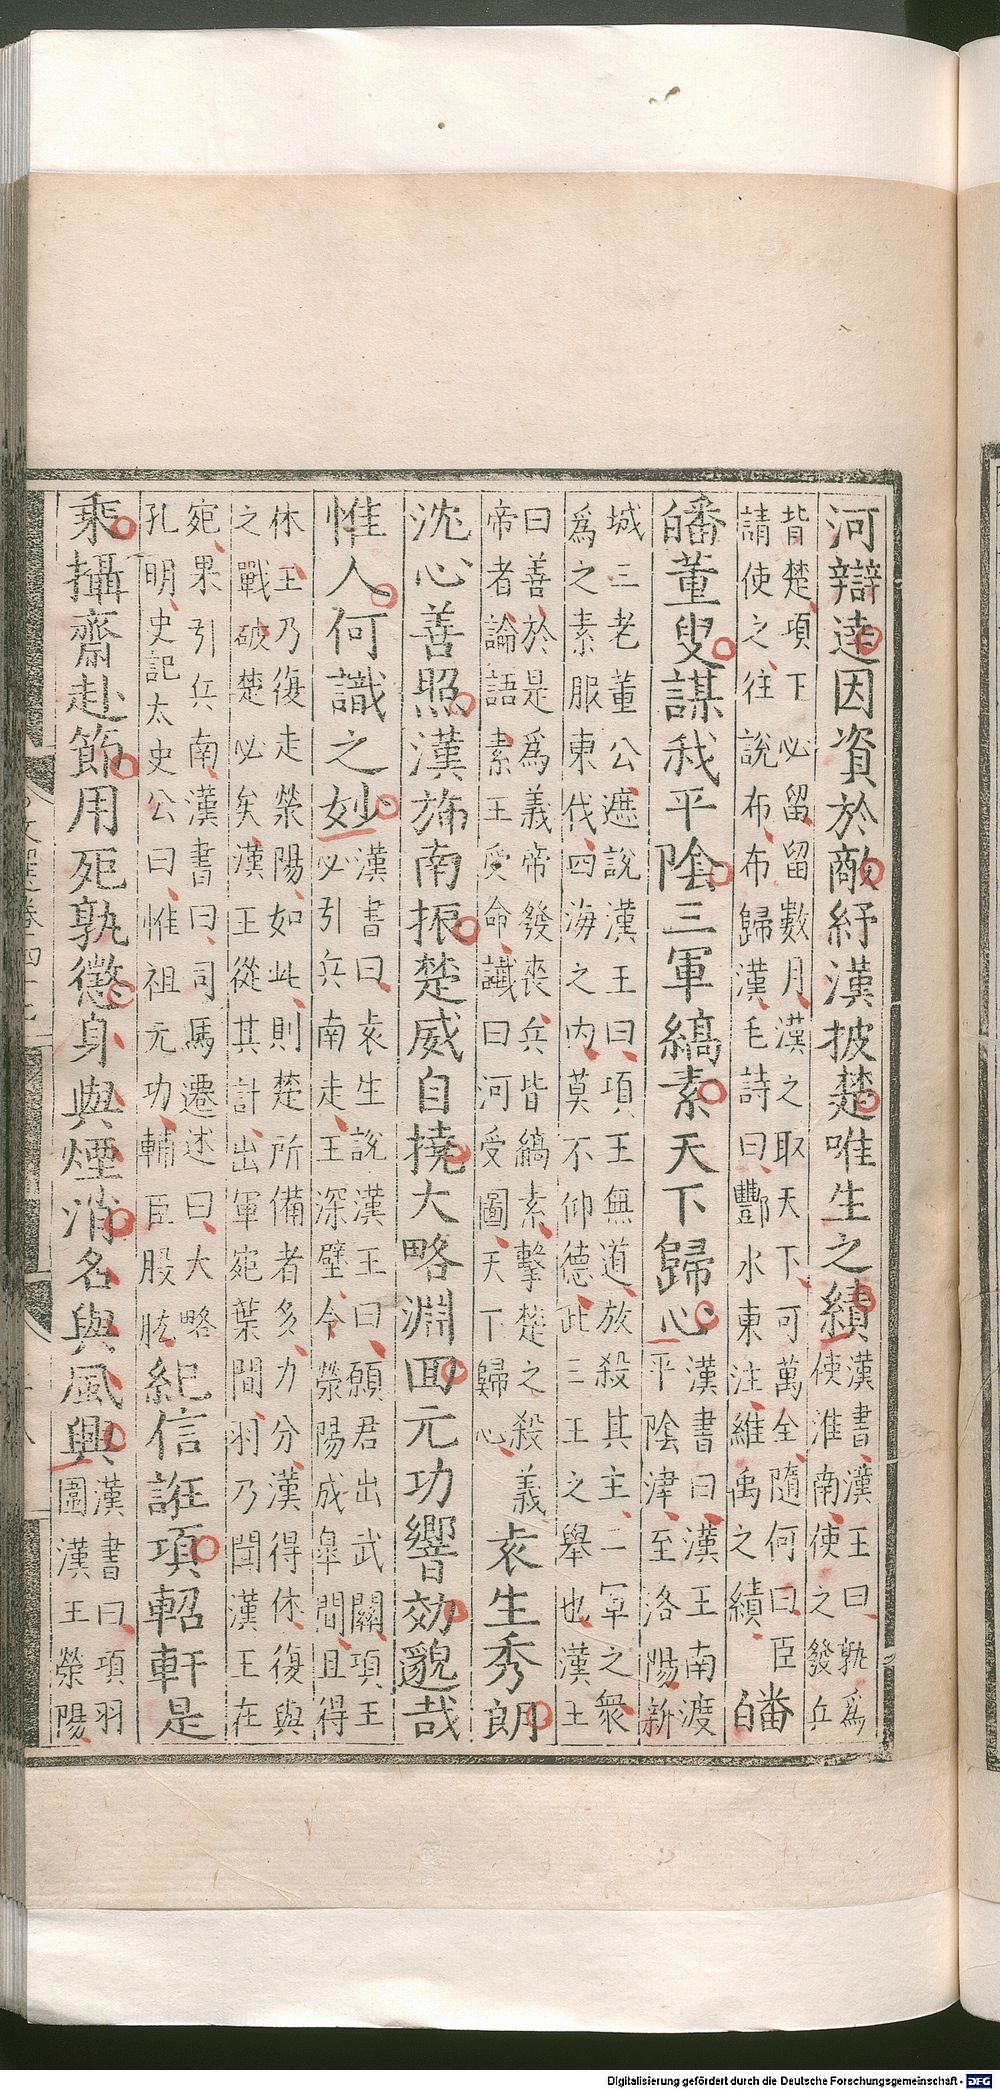 河辯達因資於敵紓漢披楚唯生之績漢書漢王曰孰爲使淮南使之發兵
背楚項下必留留數月漢之取天下可萬全隨何曰臣請使之往說布布歸漢毛詩曰酆水東注維禹之績皤
皤董叟謀我平陰三軍縞素天下歸心漢書曰漢王南渡平陰津至洛陽新
城三老董公遮說漢王曰項王無道放殺其主一軍之衆爲之素服東伐四海之內莫不仰德此三王之舉也漢王
曰善於是爲義帝發喪兵皆縞素擊楚之殺義帝者論語素王受命讖曰河受圖天下歸心袁生秀朗
沈心善照漢旆南振楚威自撓大略淵回元功響効邈哉
惟人何識之妙漢書曰袁生說漢王曰願君出武關項王必引兵南走王深壁令滎陽成皐間且得
休王乃復走滎陽如此則楚所備者多力分漢得休復與之戰破楚必矣漢王從其計出軍宛葉間羽乃聞漢王在
宛果引兵南漢書曰司馬遷述曰大略孔明史記太史公曰惟祖元功輔臣股肱紀信誑項軺軒是
乘攝齋赴節用死孰懲身與煙消名與風興漢書曰項羽圍漢王滎陽
文選卷四十七